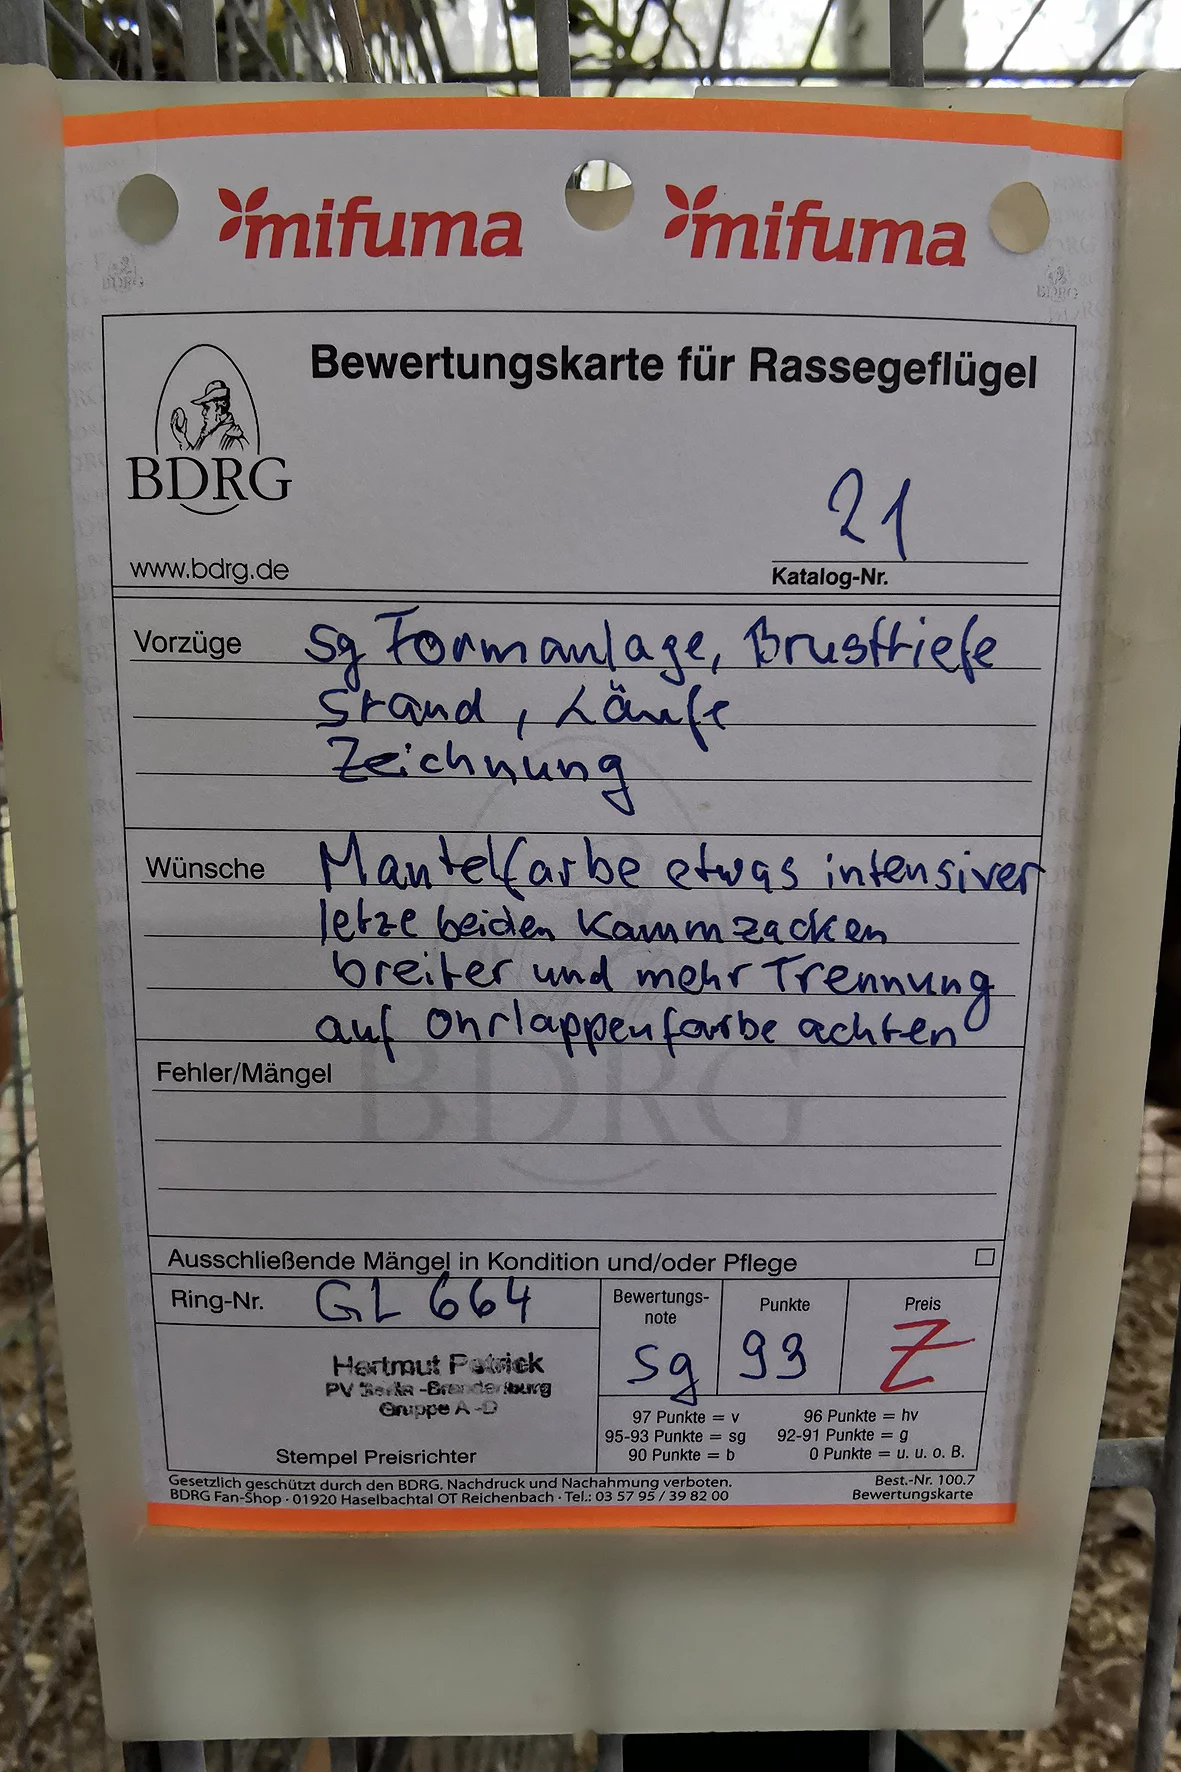 mifuma mifuma
Bewertungskarte für Rassegeflügel
BDRG
www.bdrg.de
21
Katalog-Nr.
Vorzüge sg Formanlage, Brusttiefe
Stand, Läufe
Zeichnung
Wünsche Mantelfarbe etwas intensiver
letze beiden Kammzacken
breiter und mehr Trennung
auf Ohrlappenfarbe achten
Fehler/Mängel
BDRG
Ausschließende Mängel in Kondition und/oder Pflege
Ring-Nr. GL 664
Bewertungs-
note
sg
Punkte
93
Preis
Z
Hartmut Patrick
PV Berlin-Brandenburg
Gruppe A-D
Stempel Preisrichter
97 Punkte = v 96 Punkte = hv
95-93 Punkte = sg 92-91 Punkte = g
90 Punkte = b 0 Punkte = u. u. o. B.
Gesetzlich geschützt durch den BDRG. Nachdruck und Nachahmung verboten. Best.-Nr. 100.7
BDRG Fan-Shop · 01920 Haselbachtal OT Reichenbach · Tel.: 03 57 95 / 39 82 00 Bewertungskarte